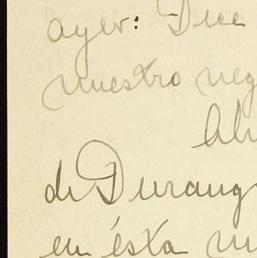 ayer: Dice
nuestro neg
de Durang
en ésta